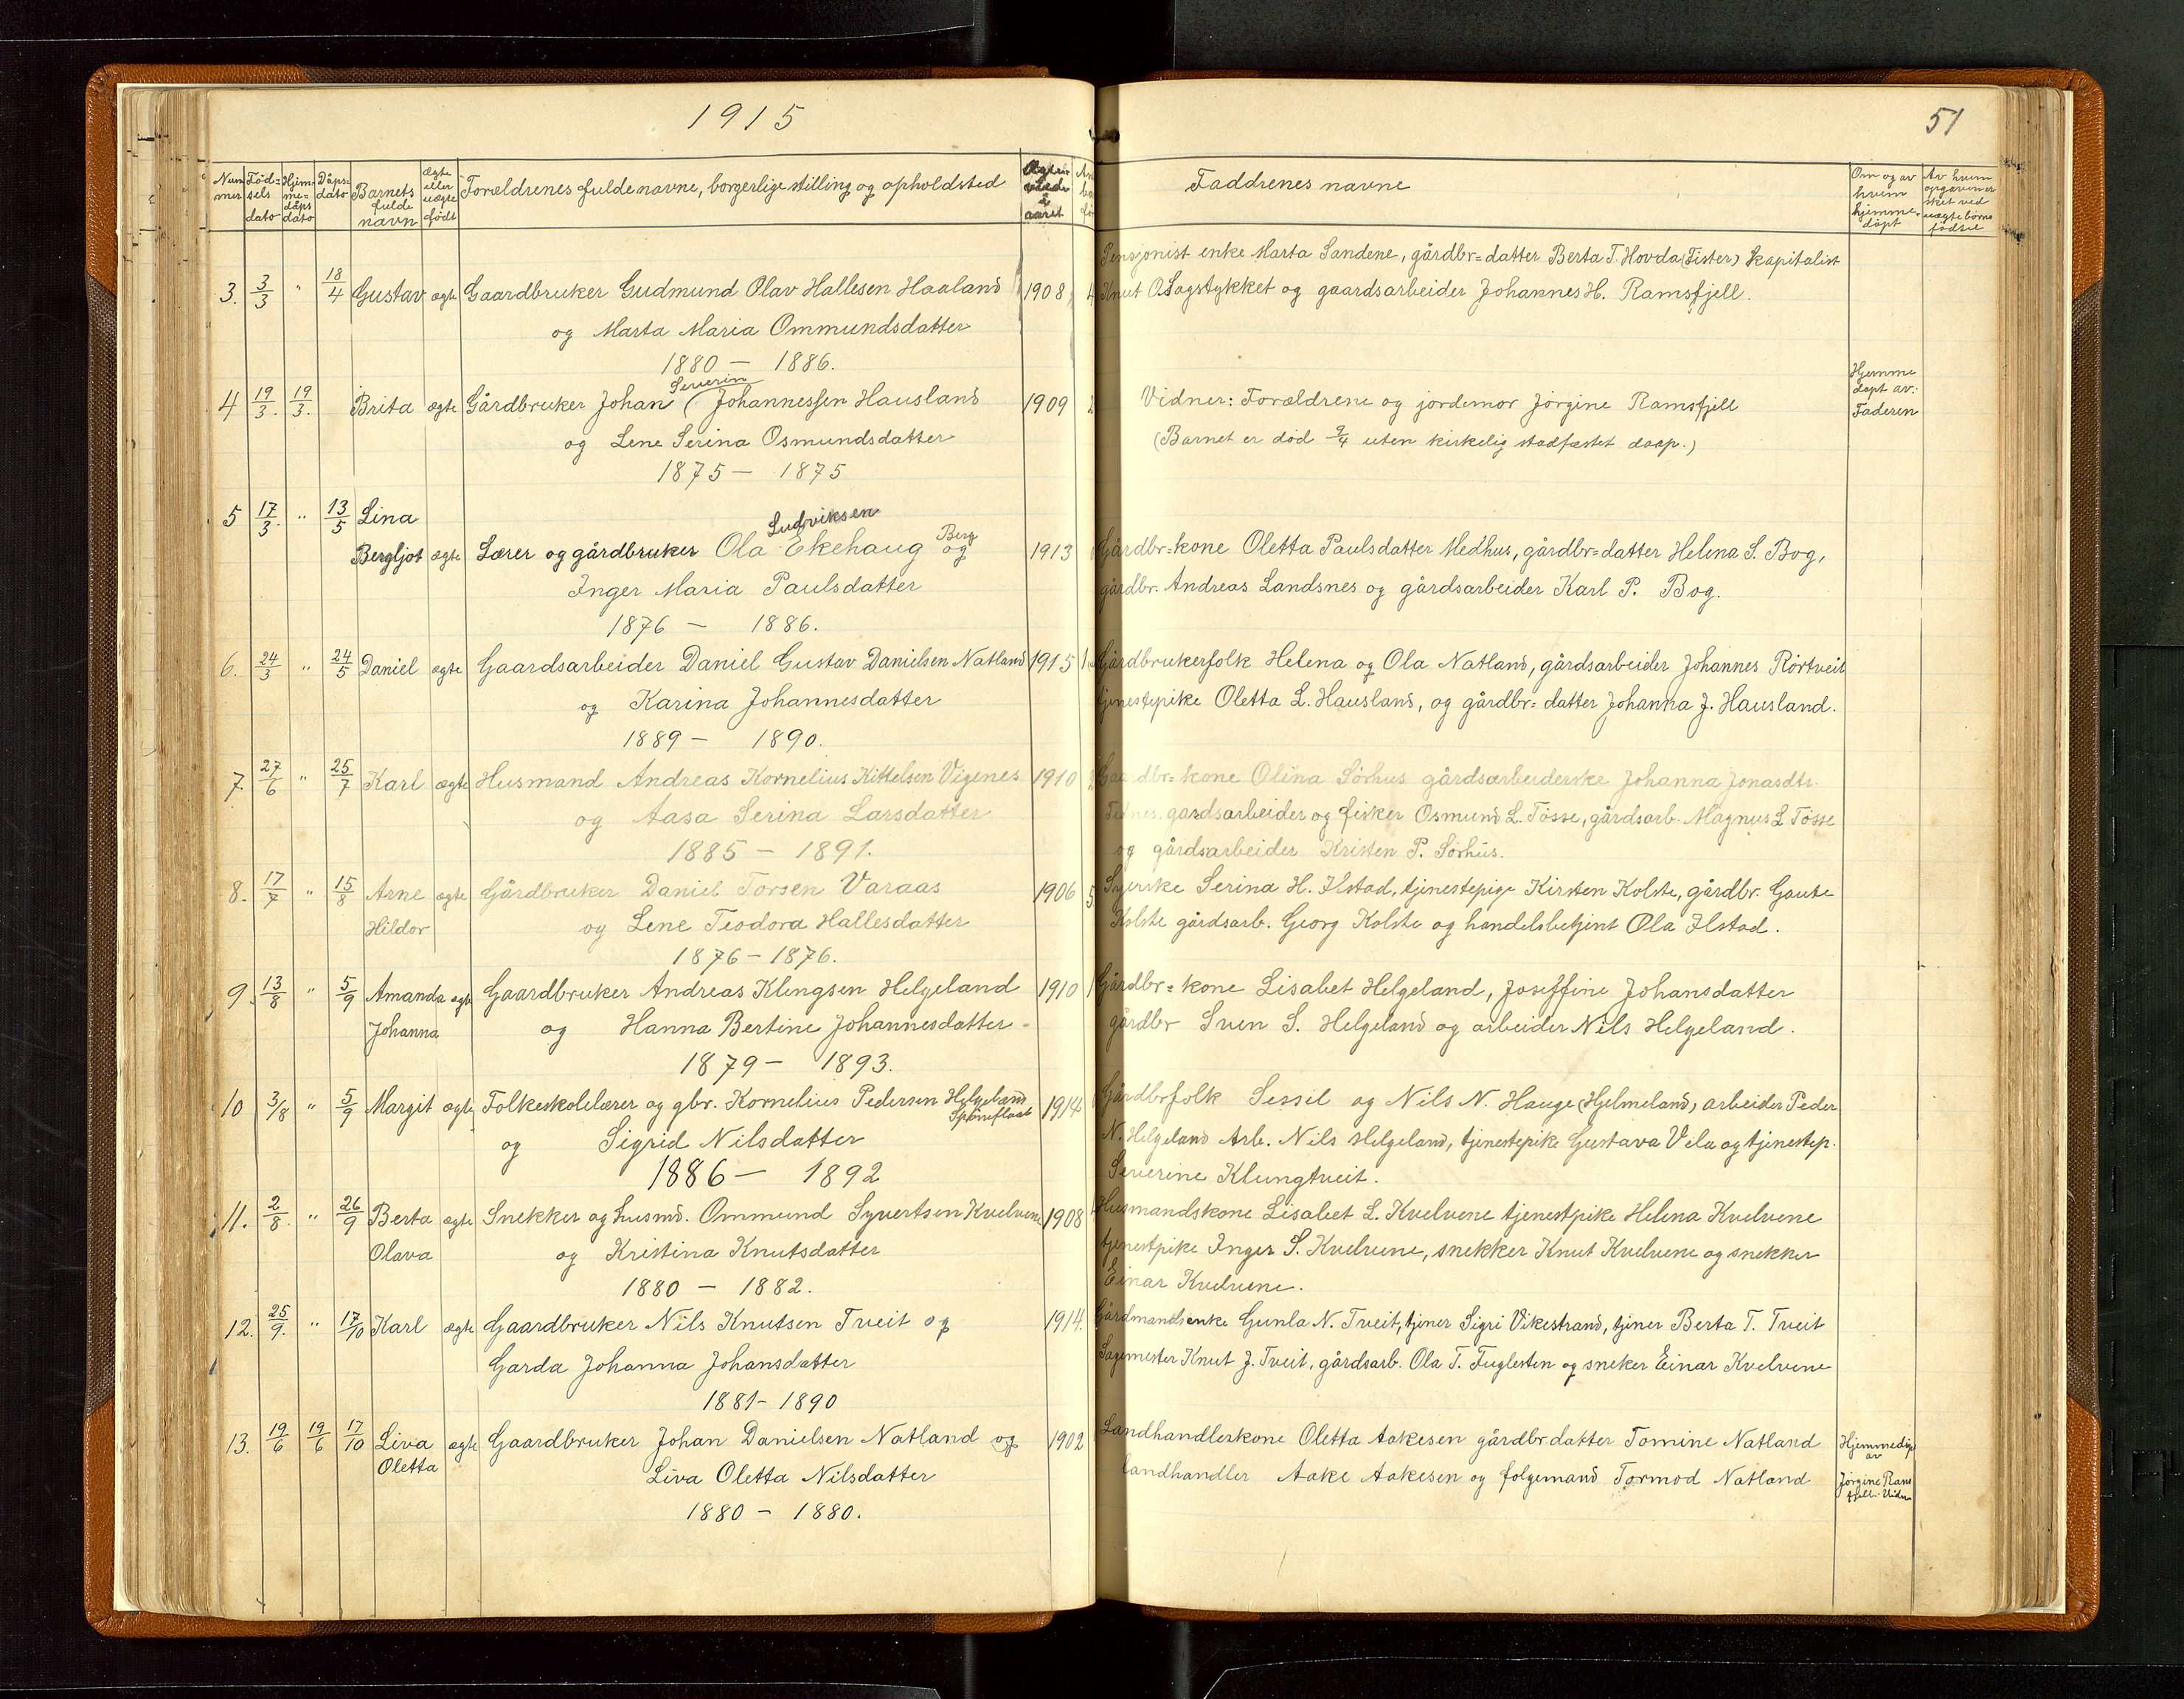 1915
51
Num mer
Fød= sels dato
Hjem- me= dåps dato
Dåps= dato
Barnets fulde navn
Ægte eller uægte født
Forældrenes fulde navne, borgerlige stilling og opholdsted
aaret
Faddrenes navne
Om og av hvem hjemme= døpt
Av hvem opgaven er sket ved uægte børns fødsel
3. 3/3 " 18/4 Gustav ægte Gaardbruker Gudmund Olav Hallesen Haaland 1908
og Marta Maria Ommundsdatter
1880 — 1886.
Pensjonist enke Marta Sandene, gårdbr=datter Berta T. Hovda (Fister) kapitalist
Knut O. Sagstykket og gaardsarbeider Johannes H. Ramsfjell.
4 19/3. 19/3. Brita ægte Gårdbruker Johan Severin Johannessen Hausland 1909
og Lene Serina Osmundsdatter
1875 — 1875
Vidner: Forældrene og jordemor Jørgine Ramsfjell
(Barnet er død 9/4 uten kirkelig stadfæstet daap.)
Hjemme døpt av: Faderen
5 17/3. " 13/5 Lina
Bergljot ægte Lærer og gårdbruker Ola Ludviksen Ekehaug Berg og 1913
Inger Maria Paulsdatter
1876 — 1886.
Gårdbr=kone Oletta Paulsdatter Medhus, gårdbr=datter Helena S. Bog,
gårdbr. Andreas Landsnes og gårdsarbeider Karl P. Bog.
6. 24/3 " 24/5 Daniel ægte Gaardsarbeider Daniel Gustav Danielsen Natland 1915 1
og Karina Johannesdatter
1889 — 1890.
Gårdbrukerfolk Helena og Ola Natland, gårdsarbeider Johannes Rørtveit
tjenestepike Oletta L. Hausland, og gårdbr= datter Johanna J. Hausland.
7. 27/6 " 25/7 Karl ægte Husmand Andreas Kornelius Kittelsen Vignes 1910
og Aasa Serina Larsdatter
1885 — 1891.
Gaardbr=kone Olina Sørhus gårdsarbeiderske Johanna Jonasdtr.
gardsarbeider og fisker Osmund L. Tøsse, gårdsarb. Magnus L Tøsse
og gårdsarbeider Kristen P. Sørhus.
8. 17/7 " 15/8 Arne ægte Gårdbruker Daniel Torsen Varaas 1906 5
Hildor og Lene Teodora Hallesdatter
1876 — 1876.
Syerske Serina H. Ilstad, tjenestepige Kirsten Kolste, gårdbr. Gaute
Kolste gårdsarb. Georg Kolste og handelsbetjent Ola Ilstad.
9. 13/8 " 5/9 Amanda ægte Gaardbruker Andreas Klingsen Helgeland 1910 1
Johanna og Hanna Bertine Johannesdatter
1879 — 1893.
Gårdbr=kone Lisabet Helgeland, Joseffine Johansdatter
gårdbr Sven S. Helgeland og arbeider Nils Helgeland.
10 3/8 " 5/9 Margit ægte Folkeskolelærer og gbr. Kornelius Pedersen Helgeland 1914
og Sigrid Nilsdatter
1886 — 1892
Gårdbrfolk Sessil og Nils N. Hauge (Hjelmeland) arbeider Peder
N. Helgeland Arb. Nils Helgeland, tjenestepike Gustava Vela og tjenestep.
Severine Klungtveit.
11. 2/8. " 26/9 Berta ægte Snekker og husmd. Ommund Syvertsen Kvelvene 1908
Olava og Kristina Knutsdatter
1880 — 1882.
Husmandskone Lisabet L. Kvelvene tjenestpike Helena Kvelvene
tjenestpike Inger S. Kvelvene, snekker Knut Kvelvene og snekker
Einar Kvelvene.
12. 25/9. " 17/10 Karl ægte Gaardbruker Nils Knutsen Tveit og 1914.
Garda Johanna Johansdatter
1881 - 1890
Gårdmandsenke Gunla N. Tveit, tjener Sigri Vikestrand, tjener Berta T. Tveit
Sagmester Knut J. Tveit, gårdsarb. Ola T. Fuglesten og sneker Einar Kvelvene
13. 19/6 19/6 17/10 Liva ægte Gaardbruker Johan Danielsen Natland og 1902
Oletta Liva Oletta Nilsdatter
1880 — 1880.
Landhandlerkone Oletta Aakesen gårdbrdatter Tomine Natland
landhandler Aake Aakesen og folgemand Tormod Natland
Hjemmedøp av
Jørgine Ramsfjell.